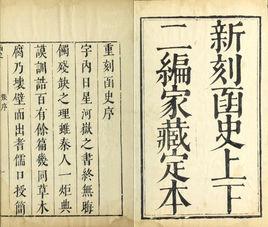 新刻函史上下
二編家藏定本
重刻函史序
宇內日星河嶽之書終無晦
僩殘缺之理雖秦人一炬典
謨訓誥百有餘篇幾同草木
腐乃壞壁而出者儒口授簡